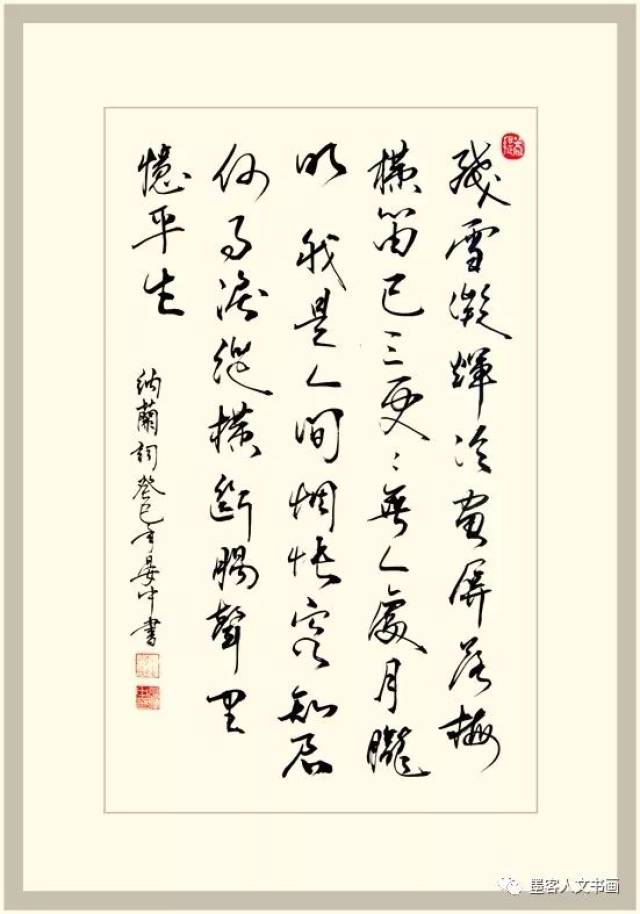 殘雪凝輝冷畫屏落梅
橫笛已三更〻無人處月朧
明我是人間惆悵客知君
何事淚縱橫斷腸聲里
憶平生
納蘭詞癸巳年晏中書
墨客人文书画